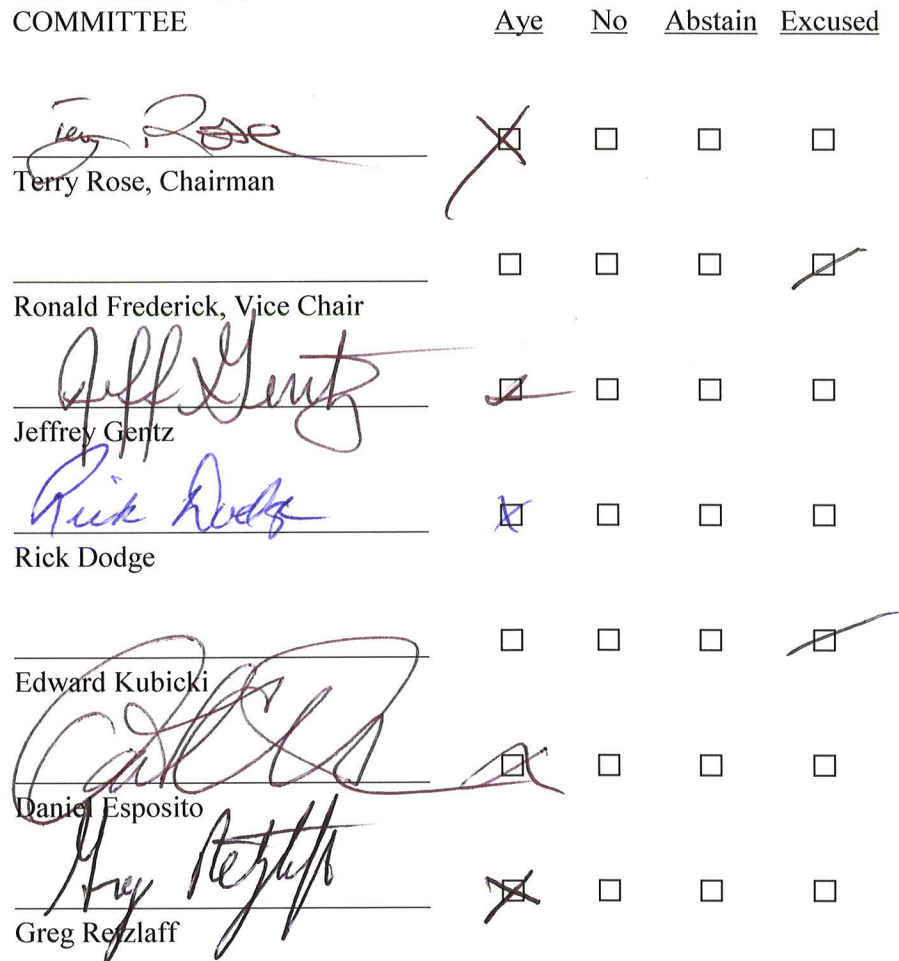 COMMITTEE Aye No Abstain Excused
Terry Rose
Terry Rose, Chairman
Ronald Frederick, Vice Chair
Jeff Gentz
Jeffrey Gentz
Rick Dodge
Rick Dodge
Edward Kubicki
Daniel Esposito
Greg Retzlaff
Greg Retzlaff